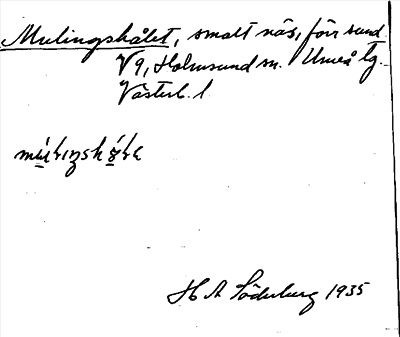 Mulingshålet, smalt näs, förr sund.
V 9, Holmsund sn. Umeå tg.
Västerb. l
H A Söderberg 1935